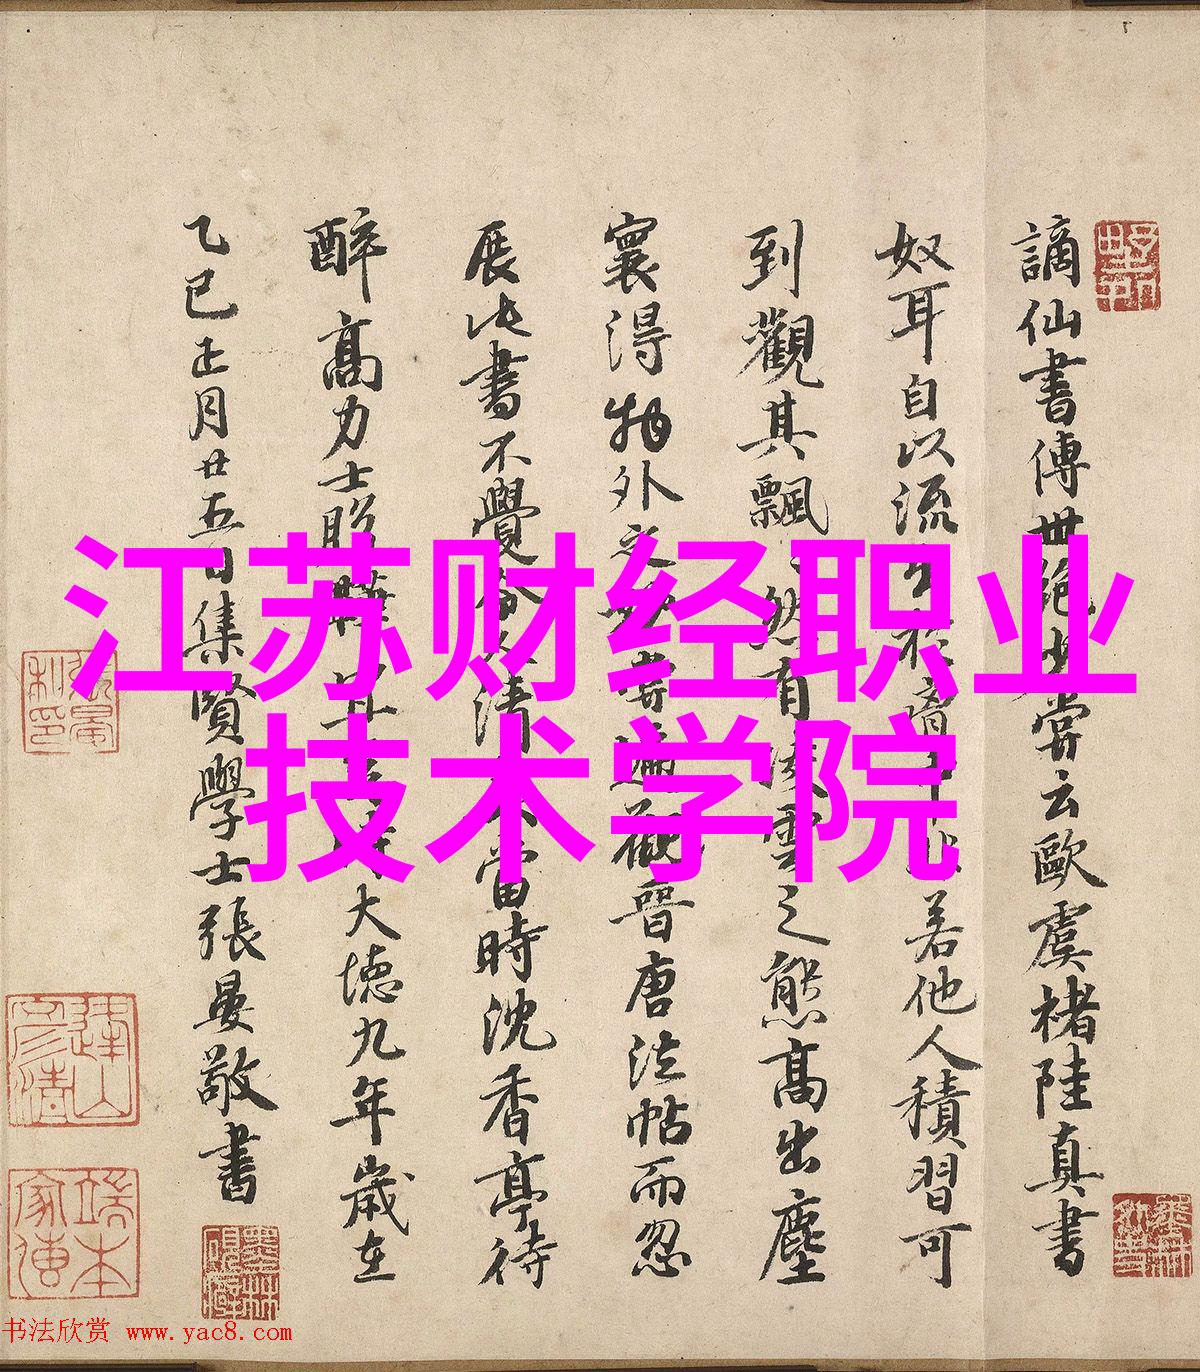 謫仙書傳世絕少嘗云歐虞褚陸真書
奴耳自以流出於胸中非若他人積習可
到觀其飄飄然有凌雲之態高出塵
寰得物外之妙嘗遍觀晉唐法帖而忽
展此書不覺令人清
當時沈香亭待
醉高力士
大德九年歲在
乙巳正月廿五日集賢學士張晏敬書
江苏财经职业
技术学院
书法欣赏 www.yac8.com